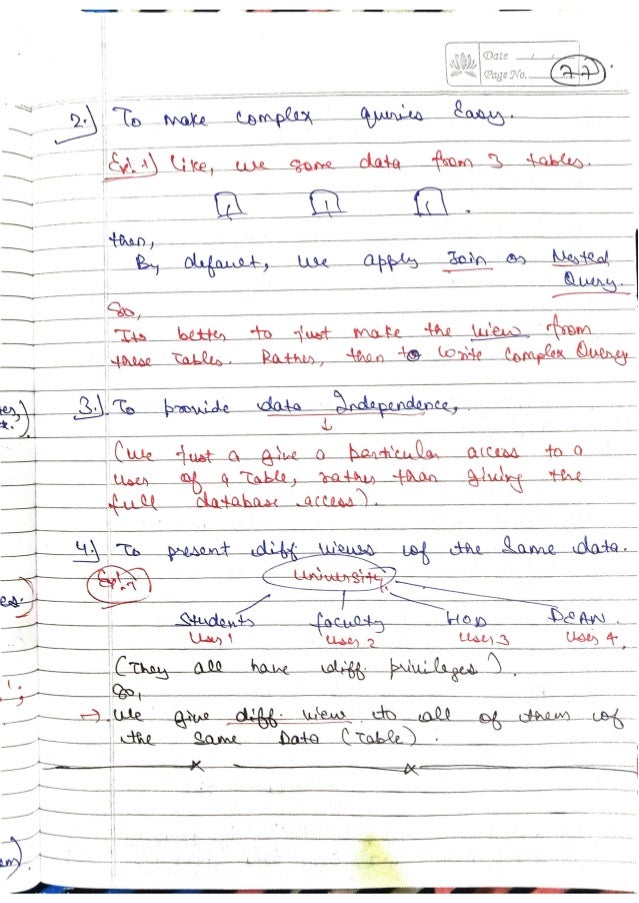 Date
Page No. 77
2.) To make complex queries Easy.
Ex:1) Like, we some data from 3 tables.
then,
By default, we apply Join or Nested
Query.
So,
Its better to just make the view from
these Tables. Rather, then to write Complex Query
3.) To provide data Independence,
↓
(we just a give a particular access to a
user of a Table, rather than giving the
full database access).
4.) To present diff. views of the Same data.
Ex:→ University
Students faculty HOD DEAN.
User 1 User 2 User 3 User 4.
(They all have diff. privileges).
So,
→. We give diff. view to all of them of
the Same Data (Table).